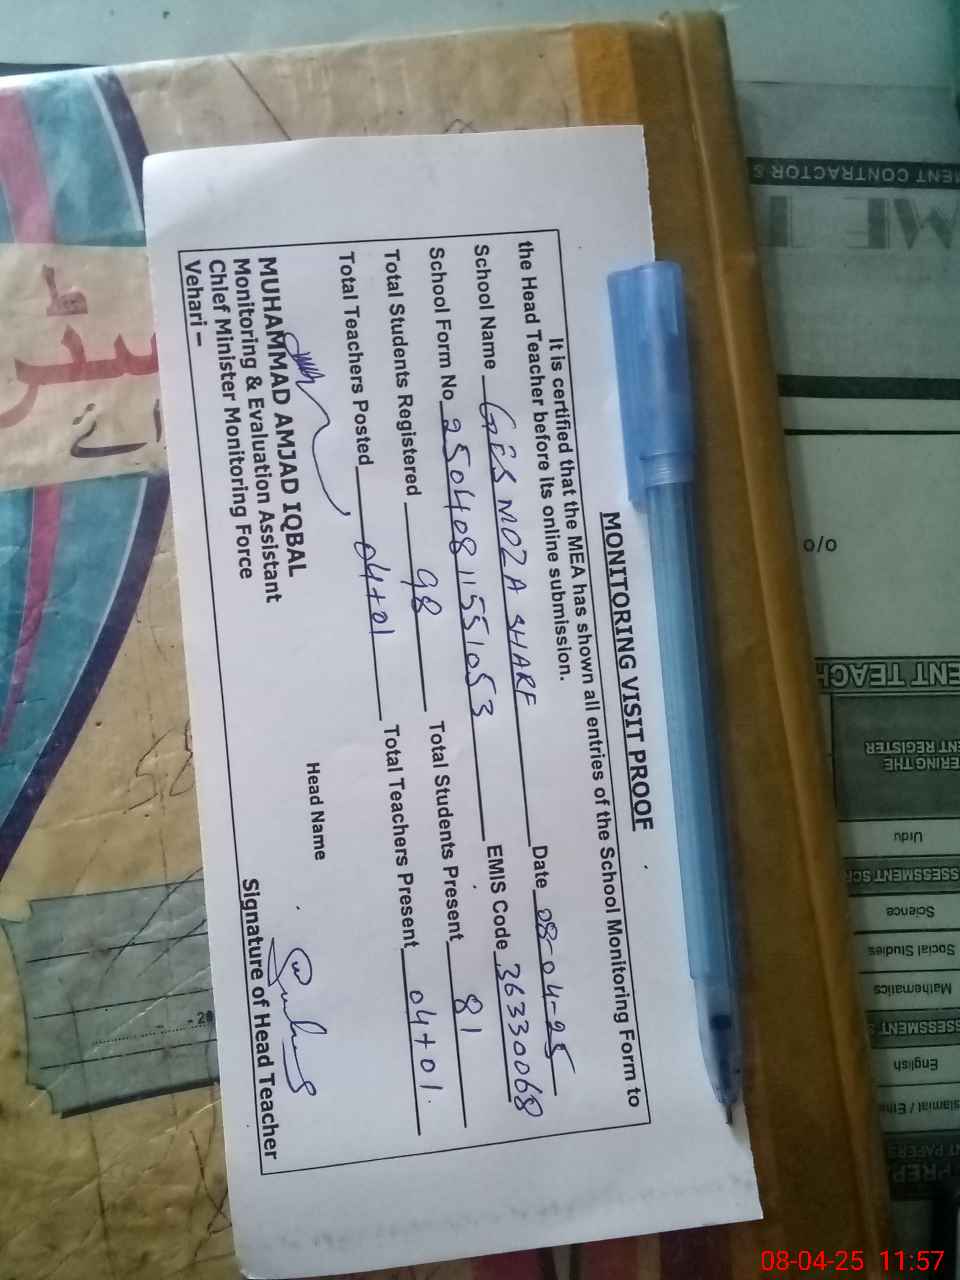 MONITORING VISIT PROOF
It is certified that the MEA has shown all entries of the School Monitoring Form to
the Head Teacher before its online submission.
School Name GES MOZA SHARF Date 08-04-25
School Form No 25040811551053 EMIS Code 36330068
Total Students Registered 98 Total Students Present 81
Total Teachers Posted 04+01 Total Teachers Present 04+01
MUHAMMAD AMJAD IQBAL
Monitoring & Evaluation Assistant
Chief Minister Monitoring Force
Vehari –
Head Name
Signature of Head Teacher
MENT CONTRACTOR &
o/o
ENT TEACH
ERING THE
ENT REGISTER
Urdu
SSESSMENT SCR
Science
Social Studies
Mathematics
SSESSMENT S
English
Islamiat / Ethi
T PAPERS
PREP
08-04-25 11:57